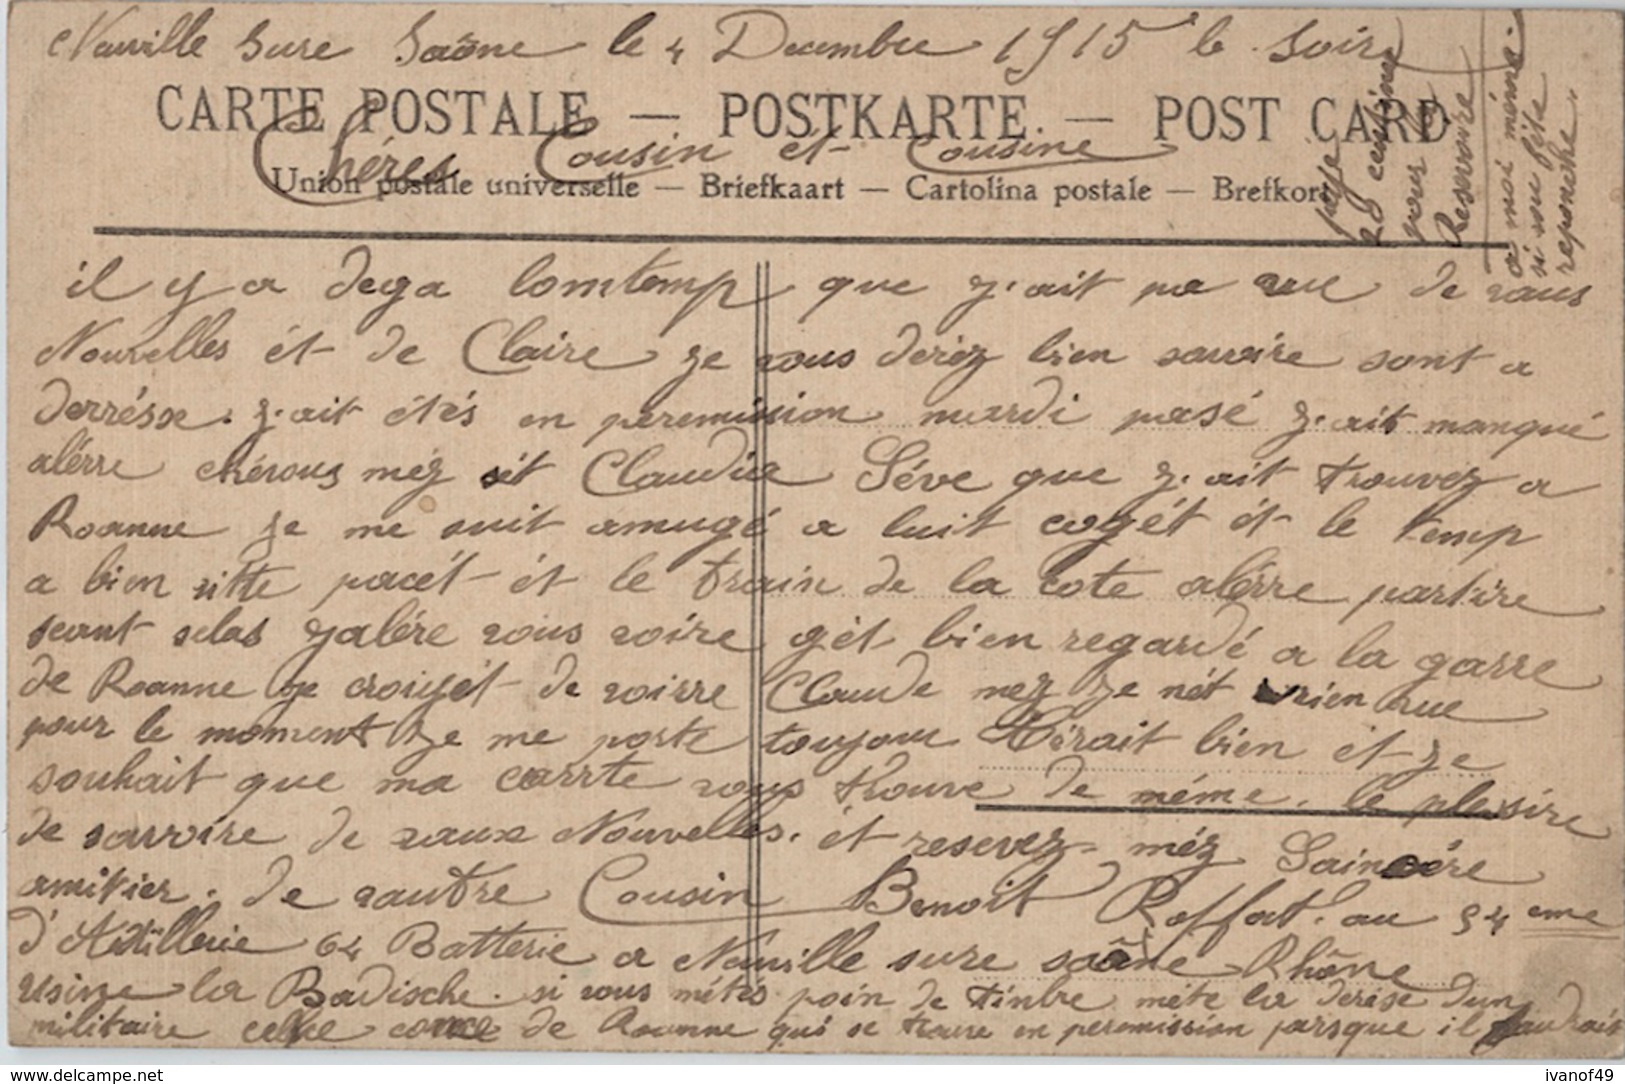 Neuville Sure Saône le 4 Decembre 1915 le Soir
CARTE POSTALE — POSTKARTE — POST CARD
Chéres Cousin et Cousine
Union postale universelle — Briefkaart — Cartolina postale — Brefkort
il y a dega lomtemp que j'ait pa eue de vaus
Nouvelles ét de Claire je vous deriez bien savoire sont a
derrésse. j'ait étés en peremission mardi pasé j'ait manqué
alérre chérous méz ét Claudia Séve que j'ait trouvez a
Roanne je me suit amugé a luit cogét ét le temp
a bien vitte pacét ét le train de la cote alérre partire
seant selas jalére vous voire gét bien regardé a la garre
de Roanne je croiyét de voirre Claude mez je nét rien vue
pour le moment je me porte toujour térait bien ét je
souhait que ma carrte vous trouve de méme. le plesire
de savoire de vaux Nouvelles. ét resevez méz Saincére
amitier. de vautre Cousin Benoit Roffat. au 54 eme
d'Artillerie 64 Batterie a Neuville sure saône Rhône
usine la Badische. si vous métés poin de tinbre méte la derése dun
militaire celue de Roanne qui se trouve en peremission parsque il faudrais
paye
20 centime
pour la
Reservoire
a moi méme.
ni vou féte
reponche.
ivanof49